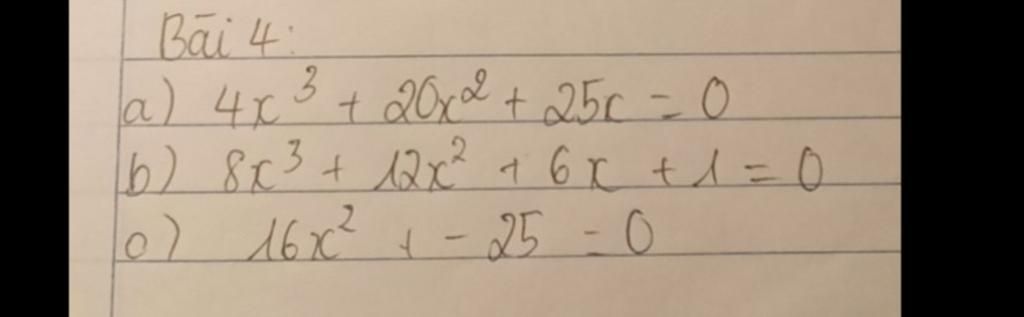 Bài 4:
a) 4x³ + 20x² + 25x = 0
b) 8x³ + 12x² + 6x + 1 = 0
c) 16x² + - 25 = 0